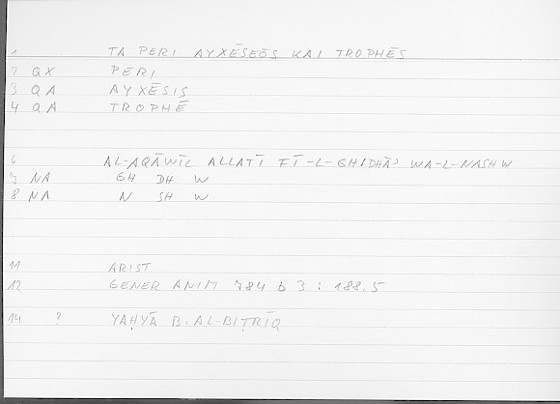 1 TA PERI AYXĒSEŌS KAI TROPHĒS
2 QX PERI
3 QA AYXĒSIS
4 QA TROPHĒ
6 AL-AQĀWĪL ALLATĪ FĪ-L-GHIDHĀʾ WA-L-NASHW
7 NA GH DH W
8 NA N SH W
11 ARIST
12 GENER ANIM 784 b 3 : 188.5
14 ? YAḤYĀ B. AL-BIṬRĪQ